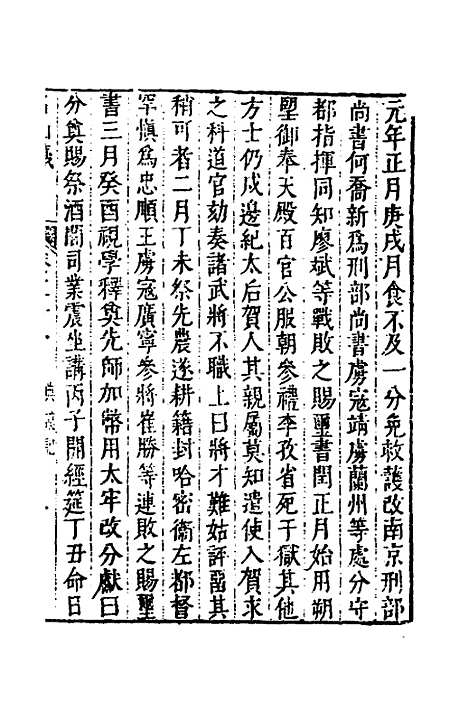 元年正月庚戌月食不及一分免救護改南京刑部
尚書何喬新爲刑部尚書虜寇靖虜蘭州等處分守
都指揮同知廖斌等戰敗之賜璽書閏正月始用朔
望御奉天殿百官公服朝參禮李孜省死于獄其他
方士仍戍邊紀太后賀人其親屬莫知遣使入賀求
之科道官劾奏諸武將不職上曰將才難姑評畱其
稍可者二月丁未祭先農遂耕籍封哈密衞左都督
罕愼爲忠順王虜寇廣寧參將崔勝等連敗之賜璽
書三月癸酉視學釋奠先師加幣用太牢改分獻曰
分奠賜祭酒誾司業震坐講丙子開經筵丁丑命日
名山藏